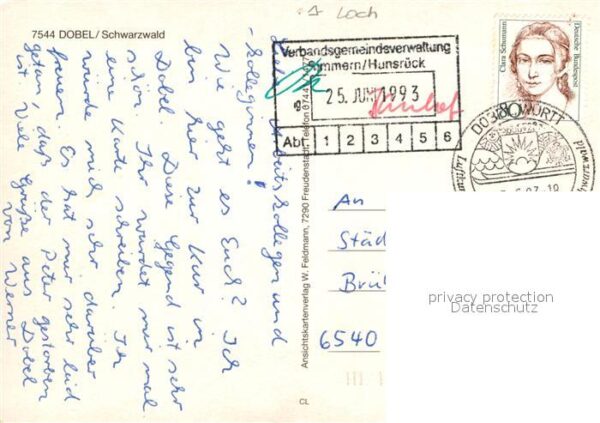 1 Loch
7544 DOBEL/Schwarzwald
Liebe Arbeitskollegen und
-kolleginnen!
Wie geht es Euch? Ich
bin hier zur Kur in
Dobel. Diese Gegend ist sehr
schön. Ihr würdet mir mal
eine Karte schreiben. Ich
würde mich sehr darüber
freuen. Es hat mir sehr leid
getan, daß der Peter gestorben
ist. Viele Grüße aus Dobel
von Werner
Ansichtskartenverlag W. Feldmann, 7290 Freudenstadt, Telefon 07441
CL
Verbandsgemeindeverwaltung
Simmern/Hunsrück
25. JUNI 1993
Abt. 1 2 3 4 5 6
Clara Schumann
Deutsche Bundespost
80
DOBEL WÜRTT
Luftkur
An
Städ
Brü
6540
privacy protection
Datenschutz